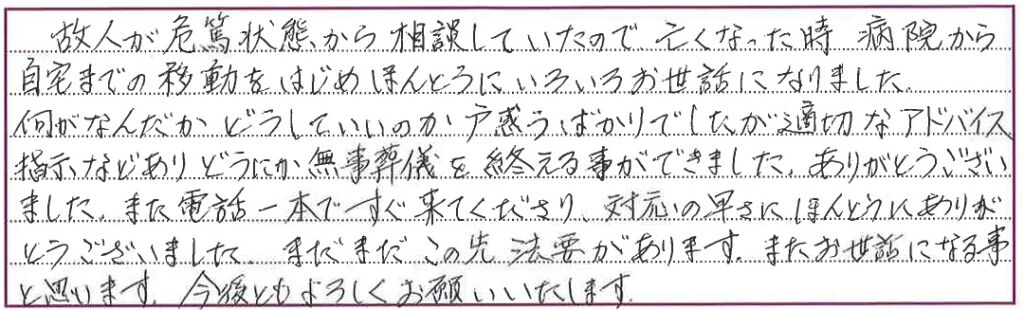 故人が危篤状態から相談していたので亡くなった時病院から
自宅までの移動をはじめほんとうにいろいろお世話になりました。
何がなんだかどうしていいのか戸惑うばかりでしたが適切なアドバイス
指示などありどうにか無事葬儀を終える事ができました。ありがとうござい
ました。また電話一本ですぐ来てくださり、対応の早さにほんとうにありが
とうございました。まだまだこの先法要があります。またお世話になる事
と思います。今後ともよろしくお願いいたします。